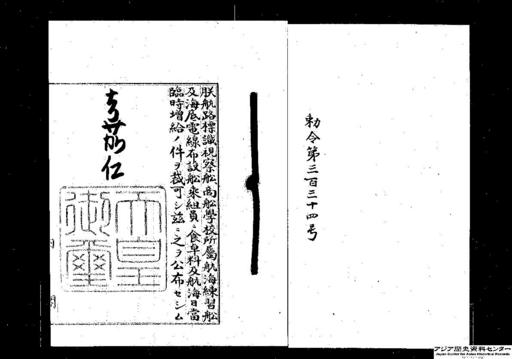 勅令第三百三十四号
朕航路標識視察船商船学校所属航海練習船
及海底電線布設船乗組員ニ食卓料及航海日当
臨時増給ノ件ヲ裁可シ茲ニ之ヲ公布セシム
嘉仁
天皇
御璽
アジア歴史資料センター
Japan Center for Asian Historical Records